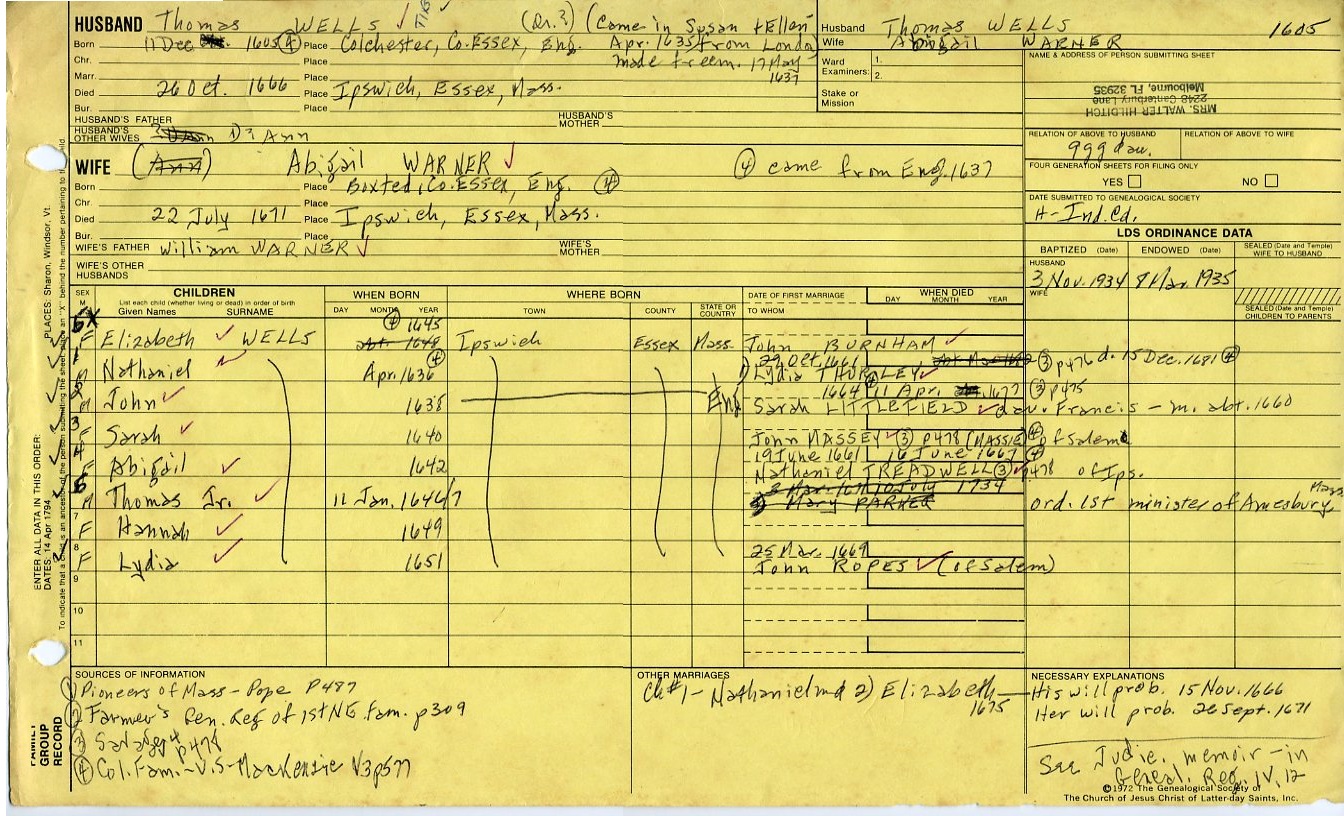 HUSBAND Thomas WELLS (Dr.?) (Came in Susan & Ellen
Born 11 Dec 1605 ④ Place Colchester, Co. Essex, Eng. Apr. 1635 from London
Chr. Place made freem. 17 May
Marr. Place 1637
Died 26 Oct. 1666 Place Ipswich, Essex, Mass.
Bur. Place
HUSBAND'S FATHER HUSBAND'S MOTHER
HUSBAND'S OTHER WIVES
Husband Thomas WELLS 1605
Wife Abigail WARNER
Ward Examiners: 1.
2.
Stake or Mission
NAME & ADDRESS OF PERSON SUBMITTING SHEET
MRS. WALTER HILDITCH
2248 Canterbury Lane
Melbourne, FL 32935
RELATION OF ABOVE TO HUSBAND RELATION OF ABOVE TO WIFE
ggg dau.
FOUR GENERATION SHEETS FOR FILING ONLY
YES NO
DATE SUBMITTED TO GENEALOGICAL SOCIETY
H-Ind.Cd.
WIFE (Ann) Abigail WARNER ④ came from Eng. 1637
Born Place Boxted, Co. Essex, Eng. ④
Chr. Place
Died 22 July 1671 Place Ipswich, Essex, Mass.
Bur. Place
WIFE'S FATHER William WARNER WIFE'S MOTHER
WIFE'S OTHER HUSBANDS
LDS ORDINANCE DATA
BAPTIZED (Date) ENDOWED (Date) SEALED (Date and Temple) WIFE TO HUSBAND
HUSBAND
3 Nov. 1934 8 Mar. 1935
WIFE
SEALED (Date and Temple) CHILDREN TO PARENTS
SEX M F
CHILDREN
List each child (whether living or dead) in order of birth
Given Names SURNAME
WHEN BORN
DAY MONTH YEAR
WHERE BORN
TOWN COUNTY STATE OR COUNTRY
DATE OF FIRST MARRIAGE
TO WHOM
WHEN DIED
DAY MONTH YEAR
④ 1645
F Elizabeth WELLS abt. 1648 Ipswich Essex Mass. John BURNHAM
29 Oct. 1661 ③ p476 d. 15 Dec. 1681 ④
1 M Nathaniel Apr. 1636 ④ Lydia THURLEY
1664 11 Apr. 1677 ③ p475
2 M John 1638 Eng Sarah LITTLEFIELD dau. Francis - m. abt. 1660
3 F Sarah 1640 John MASSEY ③ p478 (MASSIE) ④ of Salem
19 June 1661 16 June 1667 ④
4 F Abigail 1642 Nathaniel TREADWELL ③ p478 of Ips.
10 July 1734
6 M Thomas Jr. 11 Jan. 1646/7 Mary PARKER ord. 1st minister of Amesbury Mass
7 F Hannah 1649
25 Mar. 1669
8 F Lydia 1651 John ROPES (of Salem)
9
10
11
SOURCES OF INFORMATION
① Pioneers of Mass - Pope P487
② Farmer's Gen. Reg of 1st NE Fam. p309
③ p478
④ Col. Fam. - U.S - Mackenzie V3p577
OTHER MARRIAGES
Ch #1 - Nathaniel md 2) Elizabeth
1675
NECESSARY EXPLANATIONS
His will prob. 15 Nov. 1666
Her will prob. 26 Sept. 1671
See memoir - in
Geneal. Reg. IV, 12
©1972 The Genealogical Society of
The Church of Jesus Christ of Latter-day Saints, Inc.
ENTER ALL DATA IN THIS ORDER:
DATES: 14 Apr 1794 PLACES: Sharon, Windsor, Vt.
FAMILY GROUP RECORD